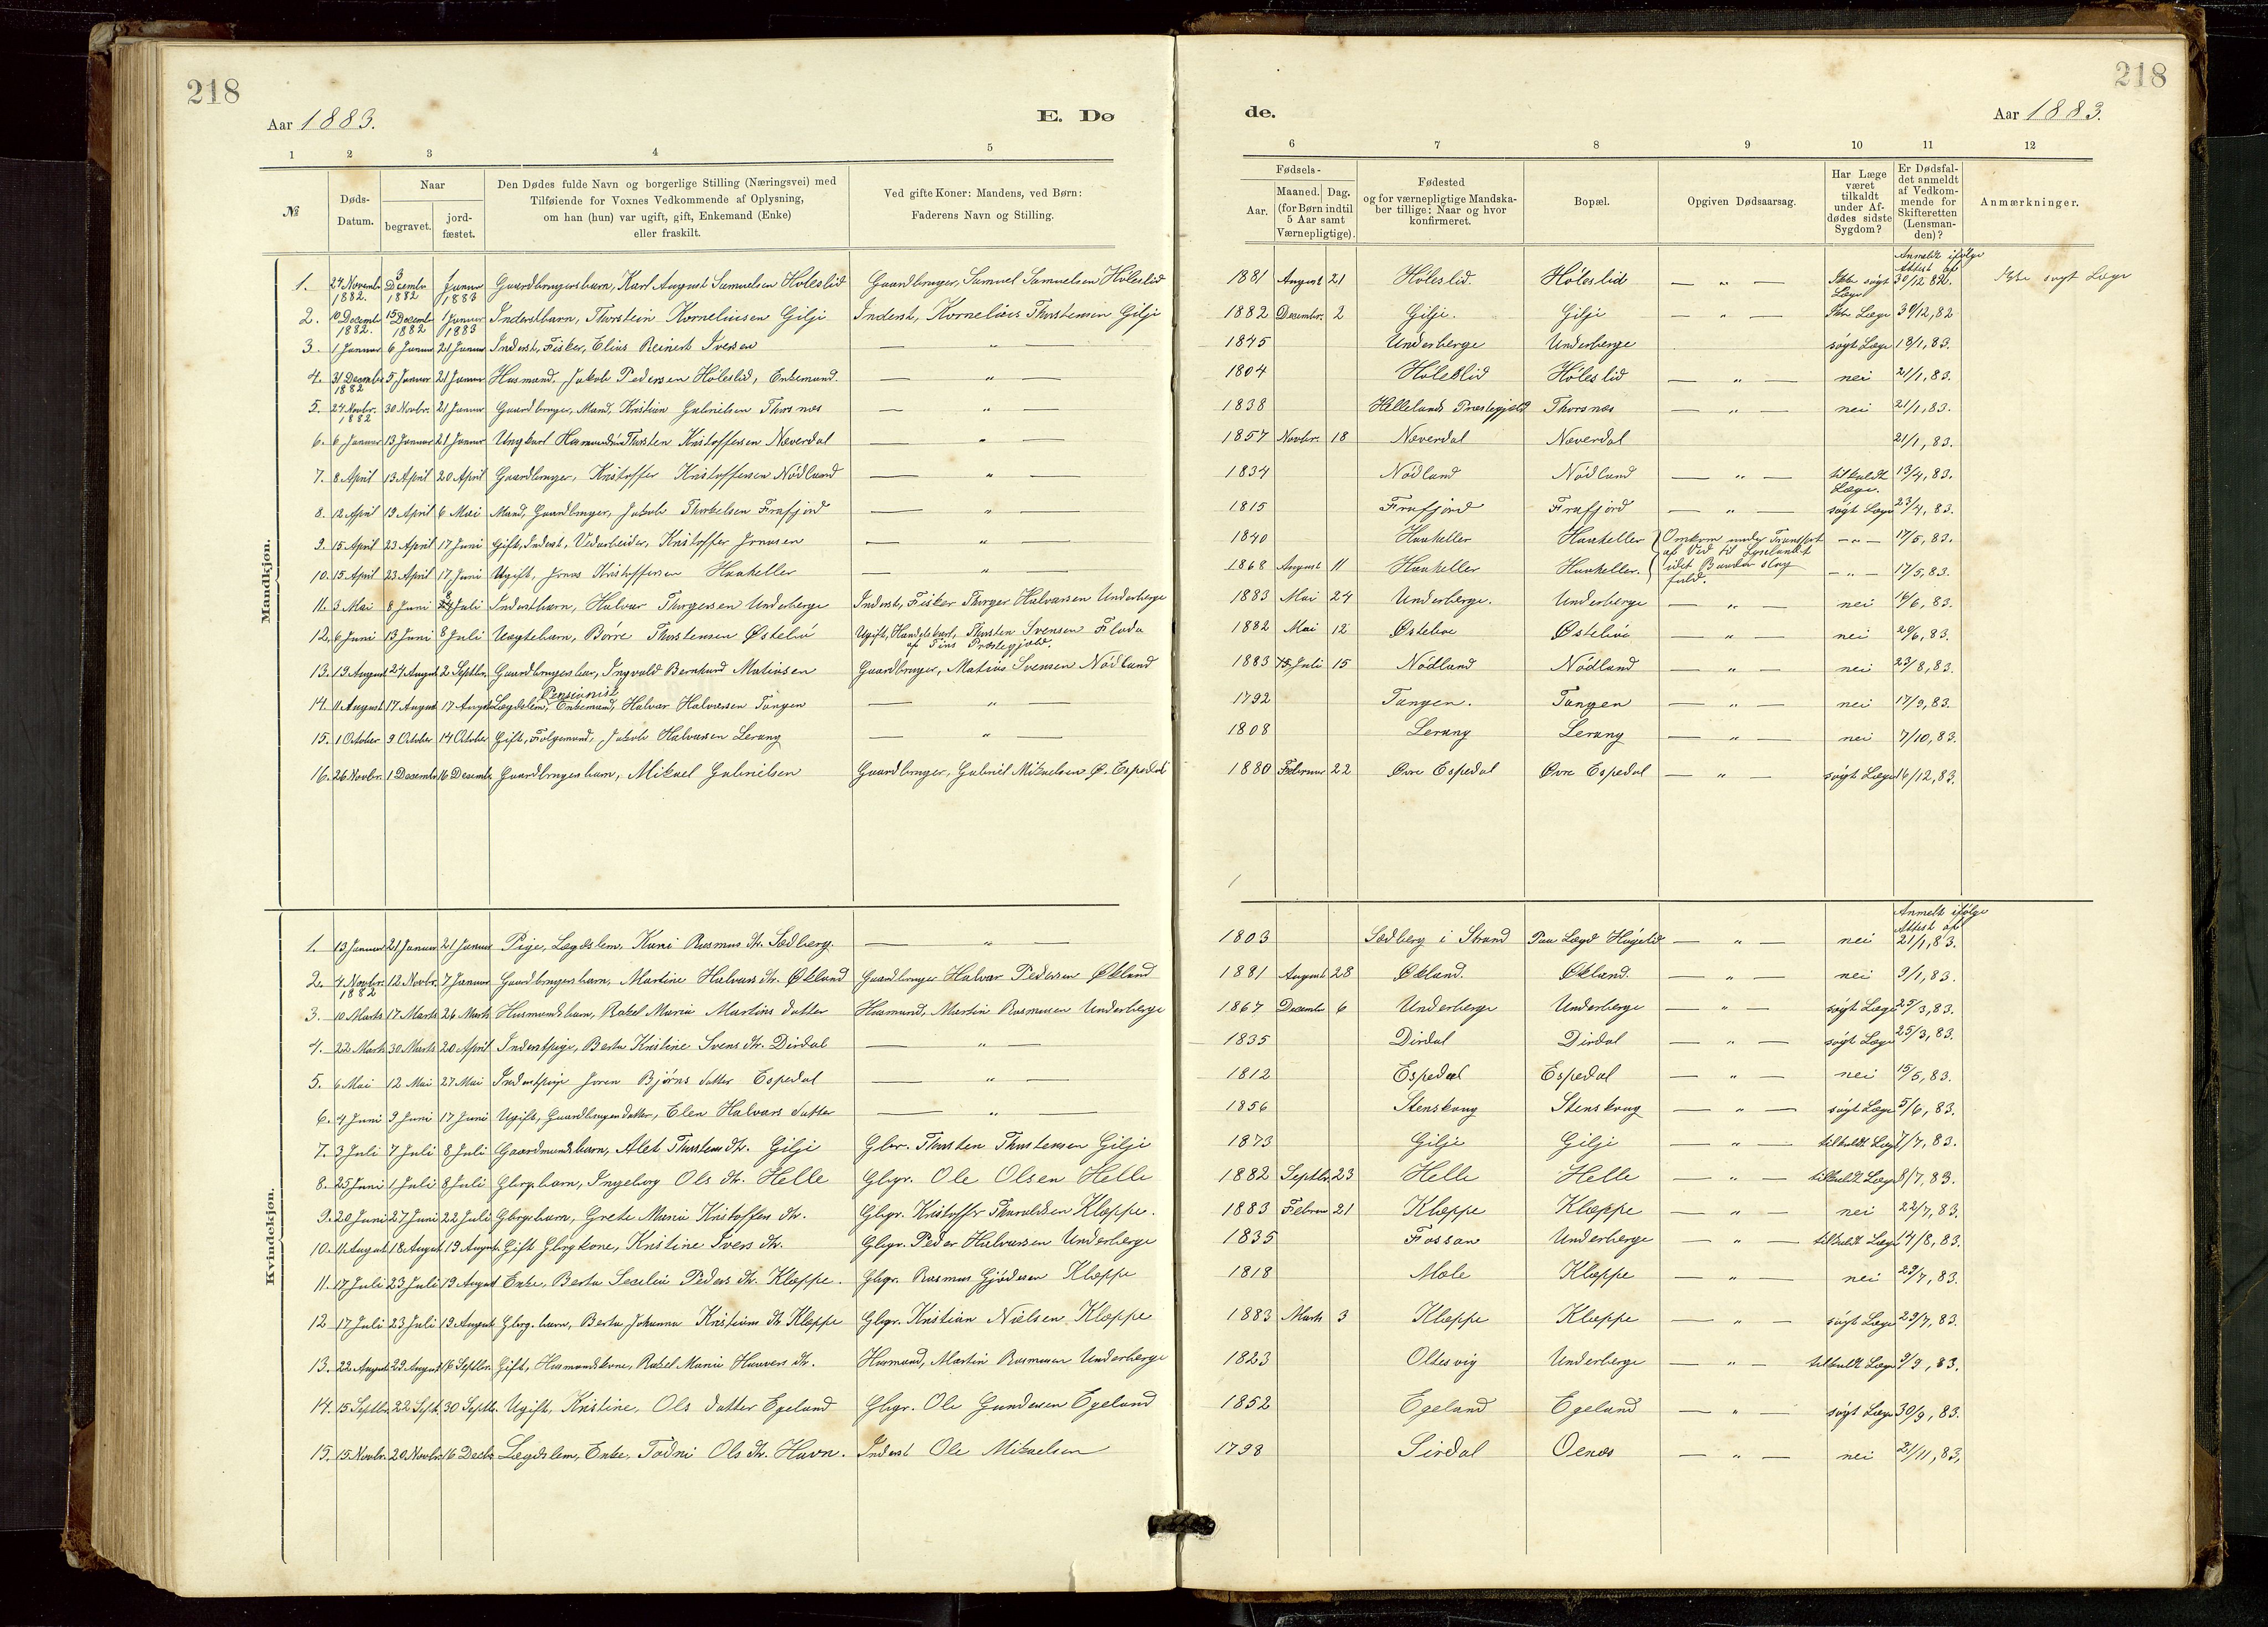 218
218
Aar 1883.
E. Dø
de.
Aar 1883.
1 2 3 4 5 6 7 8 9 10 11 12
№
Døds-Datum.
Naar
begravet.
jordfæstet.
Den Dødes fulde Navn og borgerlige Stilling (Næringsvei) med
Tilføiende for Voxnes Vedkommende af Oplysning,
om han (hun) var ugift, gift, Enkemand (Enke)
eller fraskilt.
Ved gifte Koner: Mandens, ved Børn:
Faderens Navn og Stilling.
Fødsels-
Aar. Maaned. Dag.
(for Børn indtil
5 Aar samt
Værnepligtige).
Fødested
og for værnepligtige Mandskaber tillige: Naar og hvor
konfirmeret.
Bopæl.
Opgiven Dødsaarsag.
Har Læge
været
tilkaldt
under Afdødes sidste
Sygdom?
Er Dødsfaldet anmeldt
af Vedkommende for
Skifteretten
(Lensmanden)?
Anmærkninger.
Mandkjøn.
Anmeldt ifølge Attest af
1. 27 Novembr. 1882. 3 Decembr. 1882 1 Januar 1883 Gaardbrugersbarn, Karl August Samuelsen Høleslid Gaardbruger, Samuel Samuelsen Høleslid 1881 August 21 Høleslid. Høleslid — " — Ikke søgt Læge 30/12 82. Ikke søgt Læge
2. 10 Decembr. 1882. 15 Decembr. 1882 1 Januar 1883 Inderstbarn, Thorstein Korneliusen Gilji Inderst, Kornelius Thorstensen Gilji 1882 Decembr. 2 Gilji. Gilji — " — Ikke Læge 30/12, 82
3. 1 Januar 6 Januar 21 Januar Inderst, Fisker, Elias Reinert Iversen — " — 1845 Underberge Underberge søgt Læge 18/1, 83.
4. 31 Decembr 1882 5 Januar 21 Januar Husmand, Jakob Pedersen Høleslid, Enkemand. — " — 1804 Høleslid Høleslid — " — nei 21/1, 83.
5. 24 Novbr. 1882 30 Novbr. 21 Januar Gaardbruger, Mand, Kristian Gabrielsen Thorsnæs — " — 1838 Hellelands Præstegjeld Thorsnæs — " — nei 21/1, 83.
6. 6 Januar 13 Januar 21 Januar Ungkarl Thorsten Kristoffersen Næverdal — " — 1857 Novbr. 18 Næverdal Næverdal 21/1, 83.
7. 8 April 13 April 20 April Gaardbruger, Kristoffer Kristoffersen Nödland — " — 1834 Nödland Nödland — " — tilkaldt Læge. 13/4, 83.
8. 12 April 19 April 6 Mai Mand, Gaardbruger, Jakob Thorkelsen Frafjord — " — 1815 Frafjord Frafjord — " — søgt Læge 23/4, 83.
9. 15 April 23 April 17 Juni Gift, Inderst, Vedarbeider, Kristoffer Jonasen — " — 1840 Haaheller Haaheller Omkom under Transport af Ved til — " — 17/5, 83.
10. 15 April 23 April 17 Juni Ugift, Jonas Kristoffersen Haaheller — " — 1868 August 11 Haaheller Haaheller. idet Baaden slog fuld. — " — 17/5, 83.
11. 3 Mai 8 Juni 8 Juli Inderstbarn, Halvar Thorgersen Underberge Inderst, Fisker Thorger Halvarsen Underberge 1883 Mai 24 Underberge. Underberge — " — nei 14/6, 83.
12. 6 Juni 13 Juni 8 Juli Uægtebarn, Børre Thorstensen Østeliö Ugift, Handelskarl, Thorsten Svensen Flada af Fins Præstegjæld. 1882 Mai 12 Østeliöe Østeliöe — " — nei 20/6, 83.
13. 19 August 24 August 2 Septbr. Gaardbrugersbar, Ingvald Bernhard Matiusen Gaardbruger, Matius Svensen Nödland 1883 Juli 15 Nödland Nödland — " — nei 23/8, 83.
14. 11 August 17 August 17 August Lægdslem, Pensionist Enkemand, Halvar Halvorsen Tangen — " — 1792 Tangen. Tangen — " — nei 17/9, 83.
15. 1 October 9 October 14 October Gift, Følgemand, Jakob Halvarsen Lerang — " — 1808 Lerang Lerang — " — nei 7/10, 83.
16. 26 Novbr. 1 Decembr 16 Decembr Gaardbrugersbarn, Mikael Gabrielsen Gaardbruger, Gabriel Mikaelsen Ø. Espedal 1880 Februar 22 Øvre Espedal Øvre Espedal — " — søgt Læge 16/12, 83.
Kvindekjøn.
Anmeldt ifølge Attest af
1. 13 Januar 21 Januar 21 Januar Pige, Lægdslem, Kari Rasmus dtr. Sædberg. — " — 1803 Sædberg i Strand Paa Lægd Høgelid — " — nei 21/1, 83.
2. 4 Novbr. 1882 12 Novbr. 7 Januar Gaardbrugersbarn, Martine Halvars dtr. Økland Gaardbruger Halvar Pedersen Økland 1881 August 28 Økland. Økland. — " — nei 9/1, 83.
3. 10 Marts 17 Marts 26 Marts Husmandsbarn, Rakel Maria Martins datter Husmand, Martin Rasmusen Underberge 1867 Decembr 6 Underberge Underberge — " — søgt Læge 25/3, 83.
4. 22 Marts 30 Marts 20 April Inderstpige, Berta Kristine Svens dtr. Dirdal — " — 1835 Dirdal Dirdal — " — søgt Læge 25/3, 83.
5. 6 Mai 12 Mai 27 Mai Inderstpige Joren Bjørns datter Espedal — " — 1812 Espedal Espedal — " — nei 15/5, 83.
6. 4 Juni 9 Juni 17 Juni Ugift, Gaardbrugerdatter, Elen Halvars datter — " — 1856 Stenskaug Stenskaug — " — søgt Læge 5/6, 83.
7. 3 Juli 7 Juli 8 Juli Gaardmandsbarn, Alet Thorstens dtr. Gilji Gbr. Thorsten Thorstensen Gilji 1873 Gilji Gilji — " — tilkaldt Læge 7/7, 83.
8. 25 Juni 1 Juli 8 Juli Gbrg. barn, Ingeborg Ols dtr. Helle Gbgr. Ole Olsen Helle 1882 Septbr. 23 Helle Helle — " — tilkaldt Læge 8/7, 83.
9. 20 Juni 27 Juni 22 Juli Gbrg. barn, Grete Maria Kristoffers dtr. Gbgr. Kristoffer Tharaldsen Klæppe. 1883 Februar 21 Klæppe Klæppe — " — nei 22/7, 83.
10. 11 August 18 August 19 August. Gift Gbrg kone, Kristine Ivers dtr. Gbgr. Peder Halvarsen Underberge 1835 Fossan Underberge — " — tilkaldt Læge 14/8, 83.
11. 17 Juli 23 Juli 19 August Enke, Berta Secilia Peders dtr. Klæppe. Gbgr. Rasmus Gjödesen Klæppe 1818 Mæle Klæppe — " — nei 29/7, 83.
12 17 Juli 23 Juli 19 August Gbrg. barn, Berta Johanna Kristians dtr Klæppe Gbgr. Kristian Nielsen Klæppe 1883 Marts 3 Klæppe Klæppe — " — søgt Læge 29/7, 83.
13. 22 August 29 August 16 Septbr. Gift, Husmandskone, Rakel Maria Haavers dtr. Husmand, Martin Rasmusen Underberge 1823 Oltesvig Underberge — " — tilkaldt Læge 9/9, 83.
14. 15 Septbr. 22 Sept. 30 Septb. Ugift, Kristine, Ols datter Egeland Gbgr. Ole Gundersen Egeland 1852 Egeland Egeland — " — søgt Læge 30/9, 83.
15. 15 Novbr. 20 Novbr. 16 Decbr Lægdslem, Enke, Todni Ols dtr. Havn. Inderst Ole Mikaelsen 1798 Sirdal Oenæs — " — nei 21/11, 83,